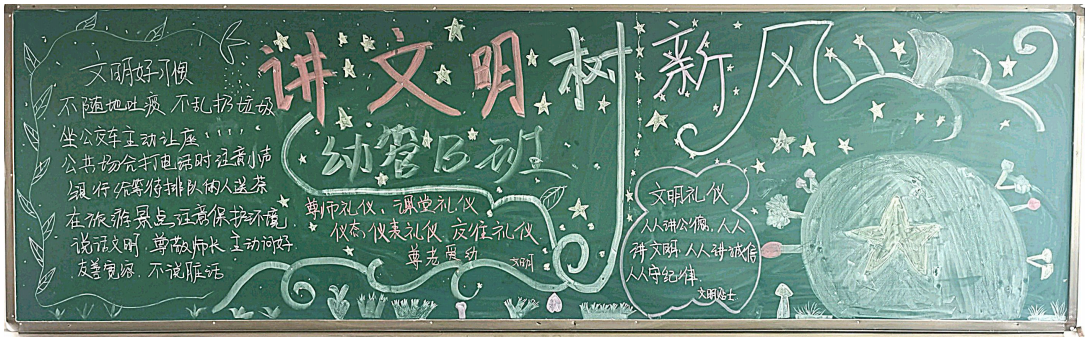 讲文明树新风
幼管B班
文明好习惯
不随地吐痰 不乱扔垃圾
坐公交车主动让座!!!!
公共场合打电话时注意小声
银行、
在旅游景点注意保护环境
说话文明 尊敬师长 主动问好
友善宽容 不说脏话
尊师礼仪、课堂礼仪
仪态仪表礼仪、交往礼仪
尊老爱幼
文明
文明礼仪
人人讲公德、人人
讲文明 人人讲诚信
人人守纪律
文明贴士